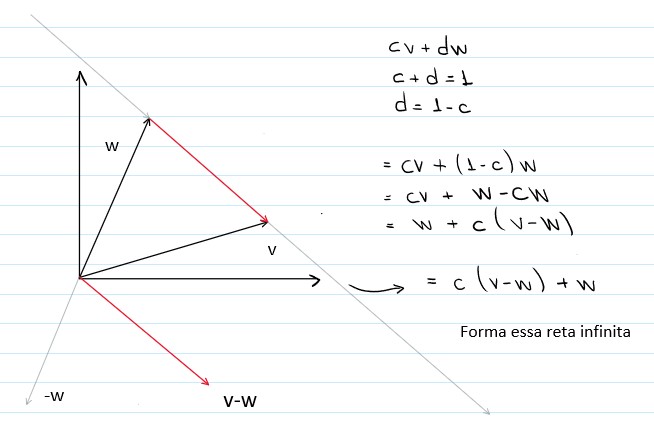 cv + dw
c + d = 1
d = 1 - c
w
= cv + (1-c) w
= cv + w - cw
= w + c (v-w)
v
= c (v-w) + w
Forma essa reta infinita
-w
v-w